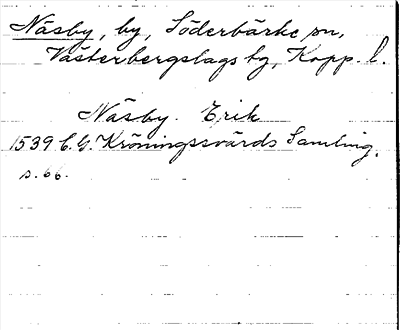 Näsby, by, Söderbärke sn,
Västerbergslags hg, Kopp. l.
Näsby. Erik
1539 C.G. Kröningssvärds Samling.
s. 66.